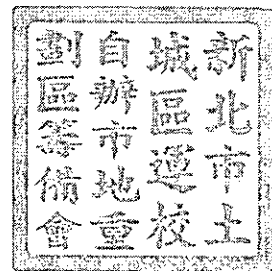 新北市土
城區運校
自辦市地重
劃區籌備會